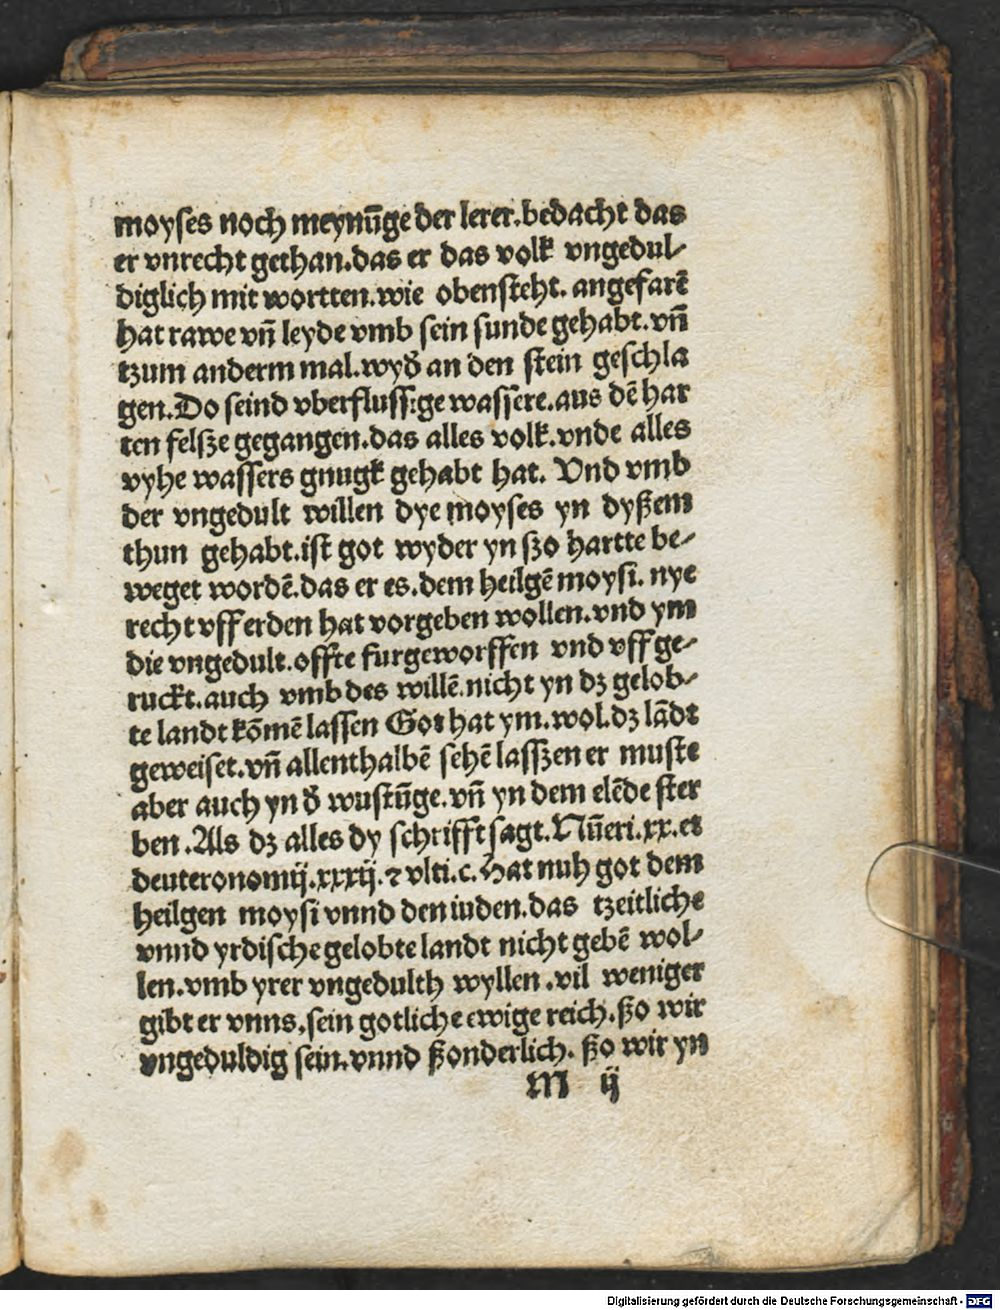 moyſes noch meynūge der lerer.bedacht das
er vnrecht gethan.das er das volk vngedul-
diglich mit wortten.wie obenſteht. angefarē
hat rawe vn̄ leyde vmb ſein ſunde gehabt.vn̄
tzum anderm mal.wyd̛ an den ſtein geſchla
gen.Do ſeind vberfluſſige waſſere.aus dē har
ten felſze gegangen.das alles volk.vnde alles
vyhe waſſers gnugk gehabt hat. Vnd vmb
der vngedult willen dye moyſes yn dyßem
thun gehabt.iſt got wyder yn ſzo hartte be-
weget wordē.das er es.dem heilgē moyſi. nye
recht vff erden hat vorgeben wollen.vnd ym
die vngedult.offte furgeworffen vnd vff ge-
ruckt.auch vmb des willē.nicht yn dꝫ gelob-
te landt kōmē laſſen Got hat ym.wol.dꝫ lādt
geweiſet.vn̄ allenthalbē ſehē laſſzen er muſte
aber auch yn d̛ wuſtūge.vn̄ yn dem elēde ſter
ben .Als dꝫ alles dy ſchrifft ſagt.Nūeri.xx.et
deuteronomij.xxxij.⁊ vlti.c.Hat nuh got dem
heilgen moyſi vnnd den iuden.das tzeitliche
vnnd yrdiſche gelobte landt nicht gebē wol-
len.vmb yrer vngedulth wyllen .vil weniger
gibt er vnns.ſein gotliche ewige reich.ßo wir
vngeduldig ſein.vnnd ßonderlich. ßo wir yn
M ij
Digitalisierung gefördert durch die Deutsche Forschungsgemeinschaft - DFG